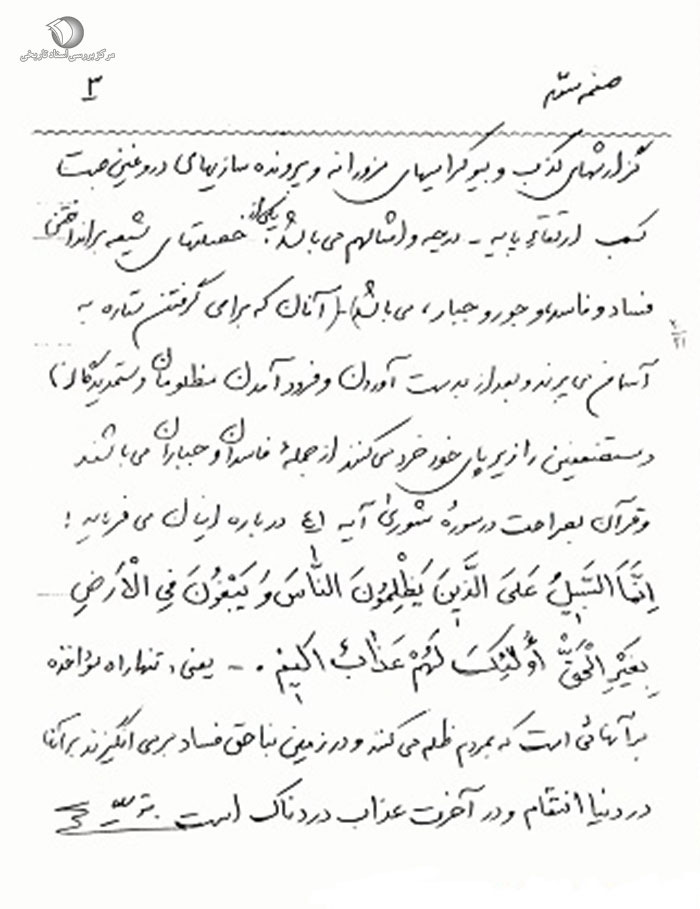 مرکز بررسی اسناد تاریخی
صفحه سوّم
۳
گزارشهای کذب و بیوگرافیهای مزورانه و پرونده سازیهای دروغین جهت
کسب ارتقاء پایه - درجه و امثالهم می باشد. یکی از خصلتهای شیعه براندا ختن
فساد و فاسد، و جور و جبار، می باشد) - (آنان که برای گرفتن ستاره به
آسمان می پرند و بعد از بدست آوردن و فرود آمدن مظلومان و ستمدیدگان)
و مستضعفین را زیر پای خود خرد می کنند از جملهٔ فاسدان و جباران می باشند
و قرآن بصراحت در سورهٔ شوری آیه ٤١ درباره اینان می فرماید :
اِنَّمَا السَّبیلُ عَلیَ الَّذینَ یَظْلِمُونَ النّاسَ وَ یَبْغُونَ فِی الْاَرْضِ
بِغَیْرِ الْحَقِّ اُولئِکَ لَهُمْ عَذابٌ اَلیمٌ . - یعنی، تنها راه مؤاخذه
بر آنهائی است که بمردم ظلم می کنند و در زمین بناحق فساد برمی انگیزند بر آنها
در دنیا انتقام و در آخرت عذاب دردناک است